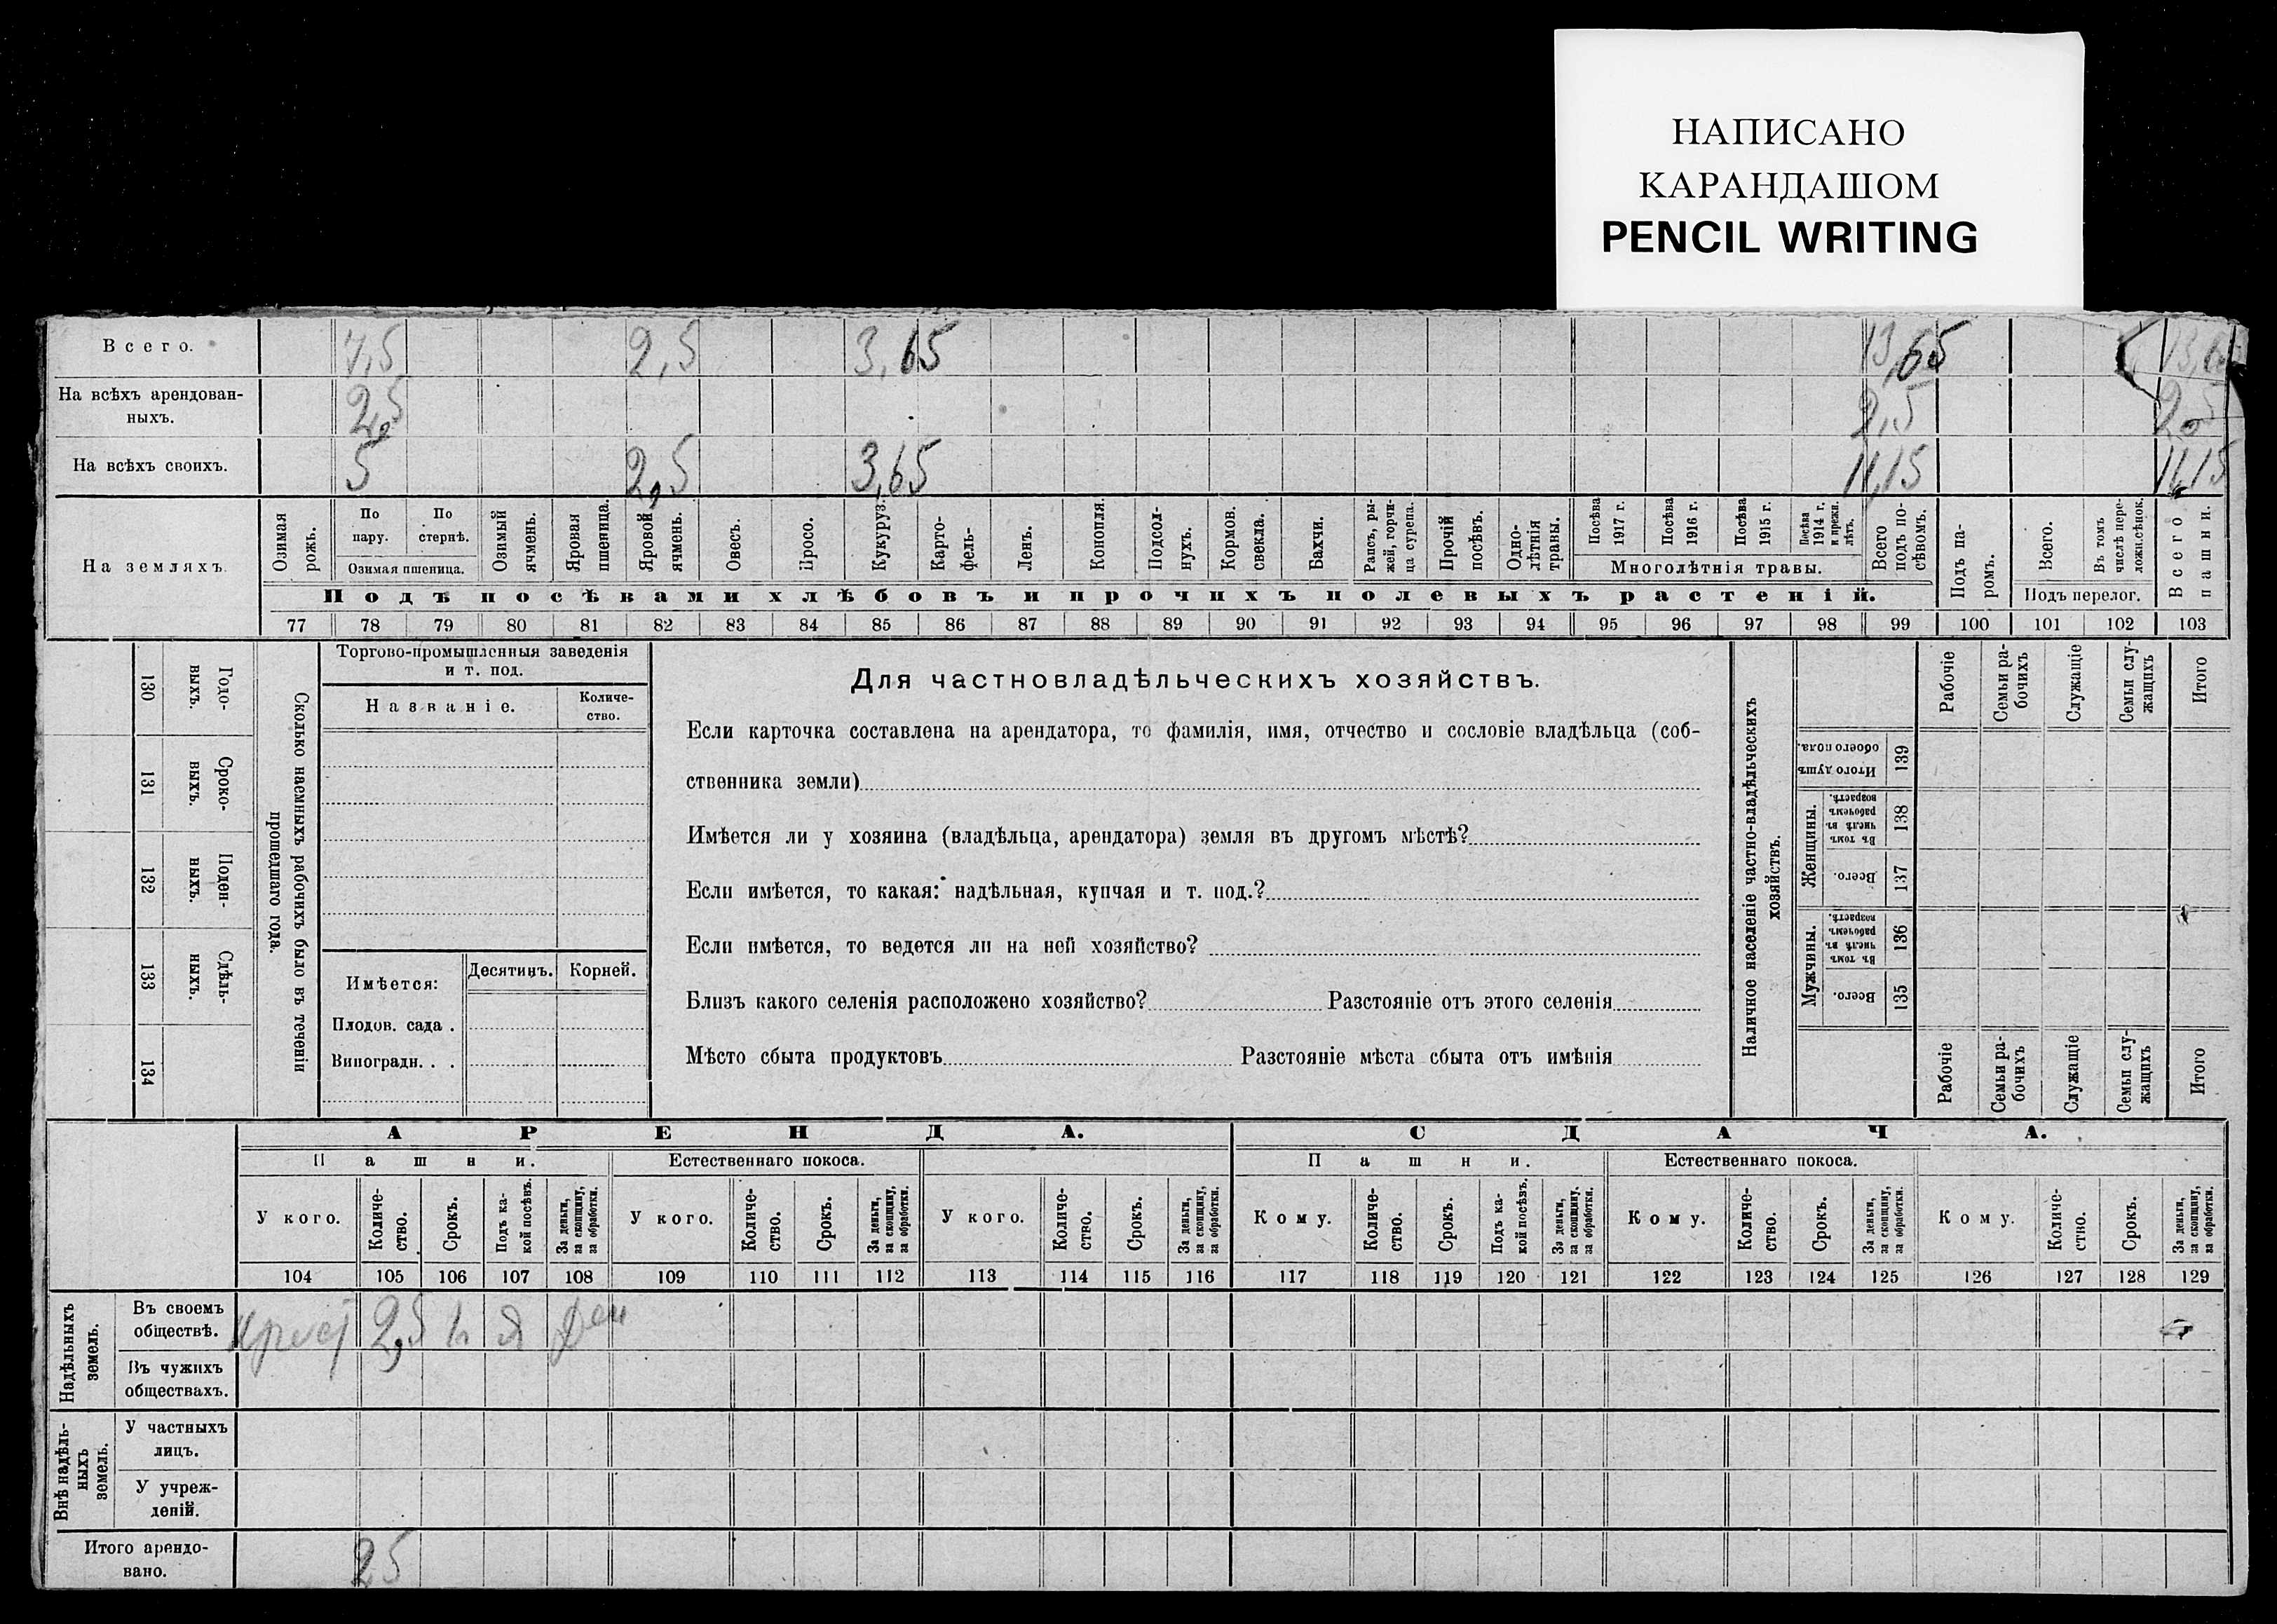 НАПИСАНО
КАРАНДАШОМ
PENCIL WRITING
Всего. 7,5 2,5 3,65 13,65 13,6
На всѣхъ арендован-
ныхъ. 2,5 2,5 2,5
На всѣхъ своихъ. 5 2,5 3,65 11,15 11,15
На земляхъ.
Озимая рожь.
По пару.
По стернѣ.
Озимая пшеница.
Озимый ячмень.
Яровая пшеница.
Яровой ячмень.
Овесъ.
Просо.
Кукуруз.
Карто-
фель.
Ленъ.
Конопля.
Подсол-
нухъ.
Кормов. свекла.
Бахчи.
Рапсъ, ры-
жей, горчи-
ца сурепа.
Прочій посѣвъ.
Одно-
лѣтнія травы.
Посѣва 1917 г.
Посѣва 1916 г.
Посѣва 1915 г.
Посѣва 1914 г. и прежн. лѣтъ.
Многолѣтнія травы.
Всего подъ по-
сѣвомъ.
Подъ посѣвами хлѣбовъ и прочихъ полевыхъ растеній.
Подъ па-
ромъ.
Всего.
Въ томъ числѣ пере-
ложн. сѣнок.
Подъ перелог.
Всего пашни.
77 78 79 80 81 82 83 84 85 86 87 88 89 90 91 92 93 94 95 96 97 98 99 100 101 102 103
130 Годо-
выхъ.
131 Сроко-
выхъ.
132 Поден-
ныхъ.
133 Сдѣль-
ныхъ.
134
Сколько наемныхъ рабочихъ было въ теченіи
прошедшаго года.
Торгово-промышленныя заведенія
и т. под.
Названіе.
Количе-
ство.
Имѣется: Десятинъ. Корней.
Плодов. сада .
Виноградн. . .
Для частновладѣльческихъ хозяйствъ.
Если карточка составлена на арендатора, то фамилія, имя, отчество и сословіе владѣльца (соб-
ственника земли)
Имѣется ли у хозяина (владѣльца, арендатора) земля въ другомъ мѣстѣ?
Если имѣется, то какая: надѣльная, купчая и т. под.?
Если имѣется, то ведется ли на ней хозяйство?
Близъ какого селенія расположено хозяйство? Разстояніе отъ этого селенія
Мѣсто сбыта продуктовъ Разстояніе мѣста сбыта отъ имѣнія
Наличное населеніе частно-владѣльческихъ
хозяйствъ.
Рабочіе
Семьи ра-
бочихъ
Служащіе
Семьи слу-
жащихъ
Итого
Итого душъ обоего пола. 139
Женщины.
Въ томъ числѣ въ рабочемъ возрастѣ. 138
Всего. 137
Мужчины.
Въ томъ числѣ въ рабочемъ возрастѣ. 136
Всего. 135
Рабочіе
Семьи ра-
бочихъ
Служащіе
Семьи слу-
жащихъ
Итого
АРЕНДА. СДАЧА.
Пашни. Естественнаго покоса. Пашни. Естественнаго покоса.
У кого.
Количе-
ство.
Срокъ.
Подъ ка-
кой посѣвъ.
За деньги, за скопщину, за обработки.
У кого.
Количе-
ство.
Срокъ.
За деньги, за скопщину, за обработки.
У кого.
Количе-
ство.
Срокъ.
За деньги, за скопщину, за обработки.
Кому.
Количе-
ство.
Срокъ.
Подъ ка-
кой посѣвъ.
За деньги, за скопщину, за обработки.
Кому.
Количе-
ство.
Срокъ.
За деньги, за скопщину, за обработки.
Кому.
Количе-
ство.
Срокъ.
За деньги, за скопщину, за обработки.
104 105 106 107 108 109 110 111 112 113 114 115 116 117 118 119 120 121 122 123 124 125 126 127 128 129
Надѣльныхъ
земель.
Въ своемъ
обществѣ. крест 2,5 ден
Въ чужихъ
обществахъ.
Внѣ надѣль-
ныхъ
земель.
У частныхъ
лицъ.
У учреж-
деній.
Итого арендо-
вано. 25